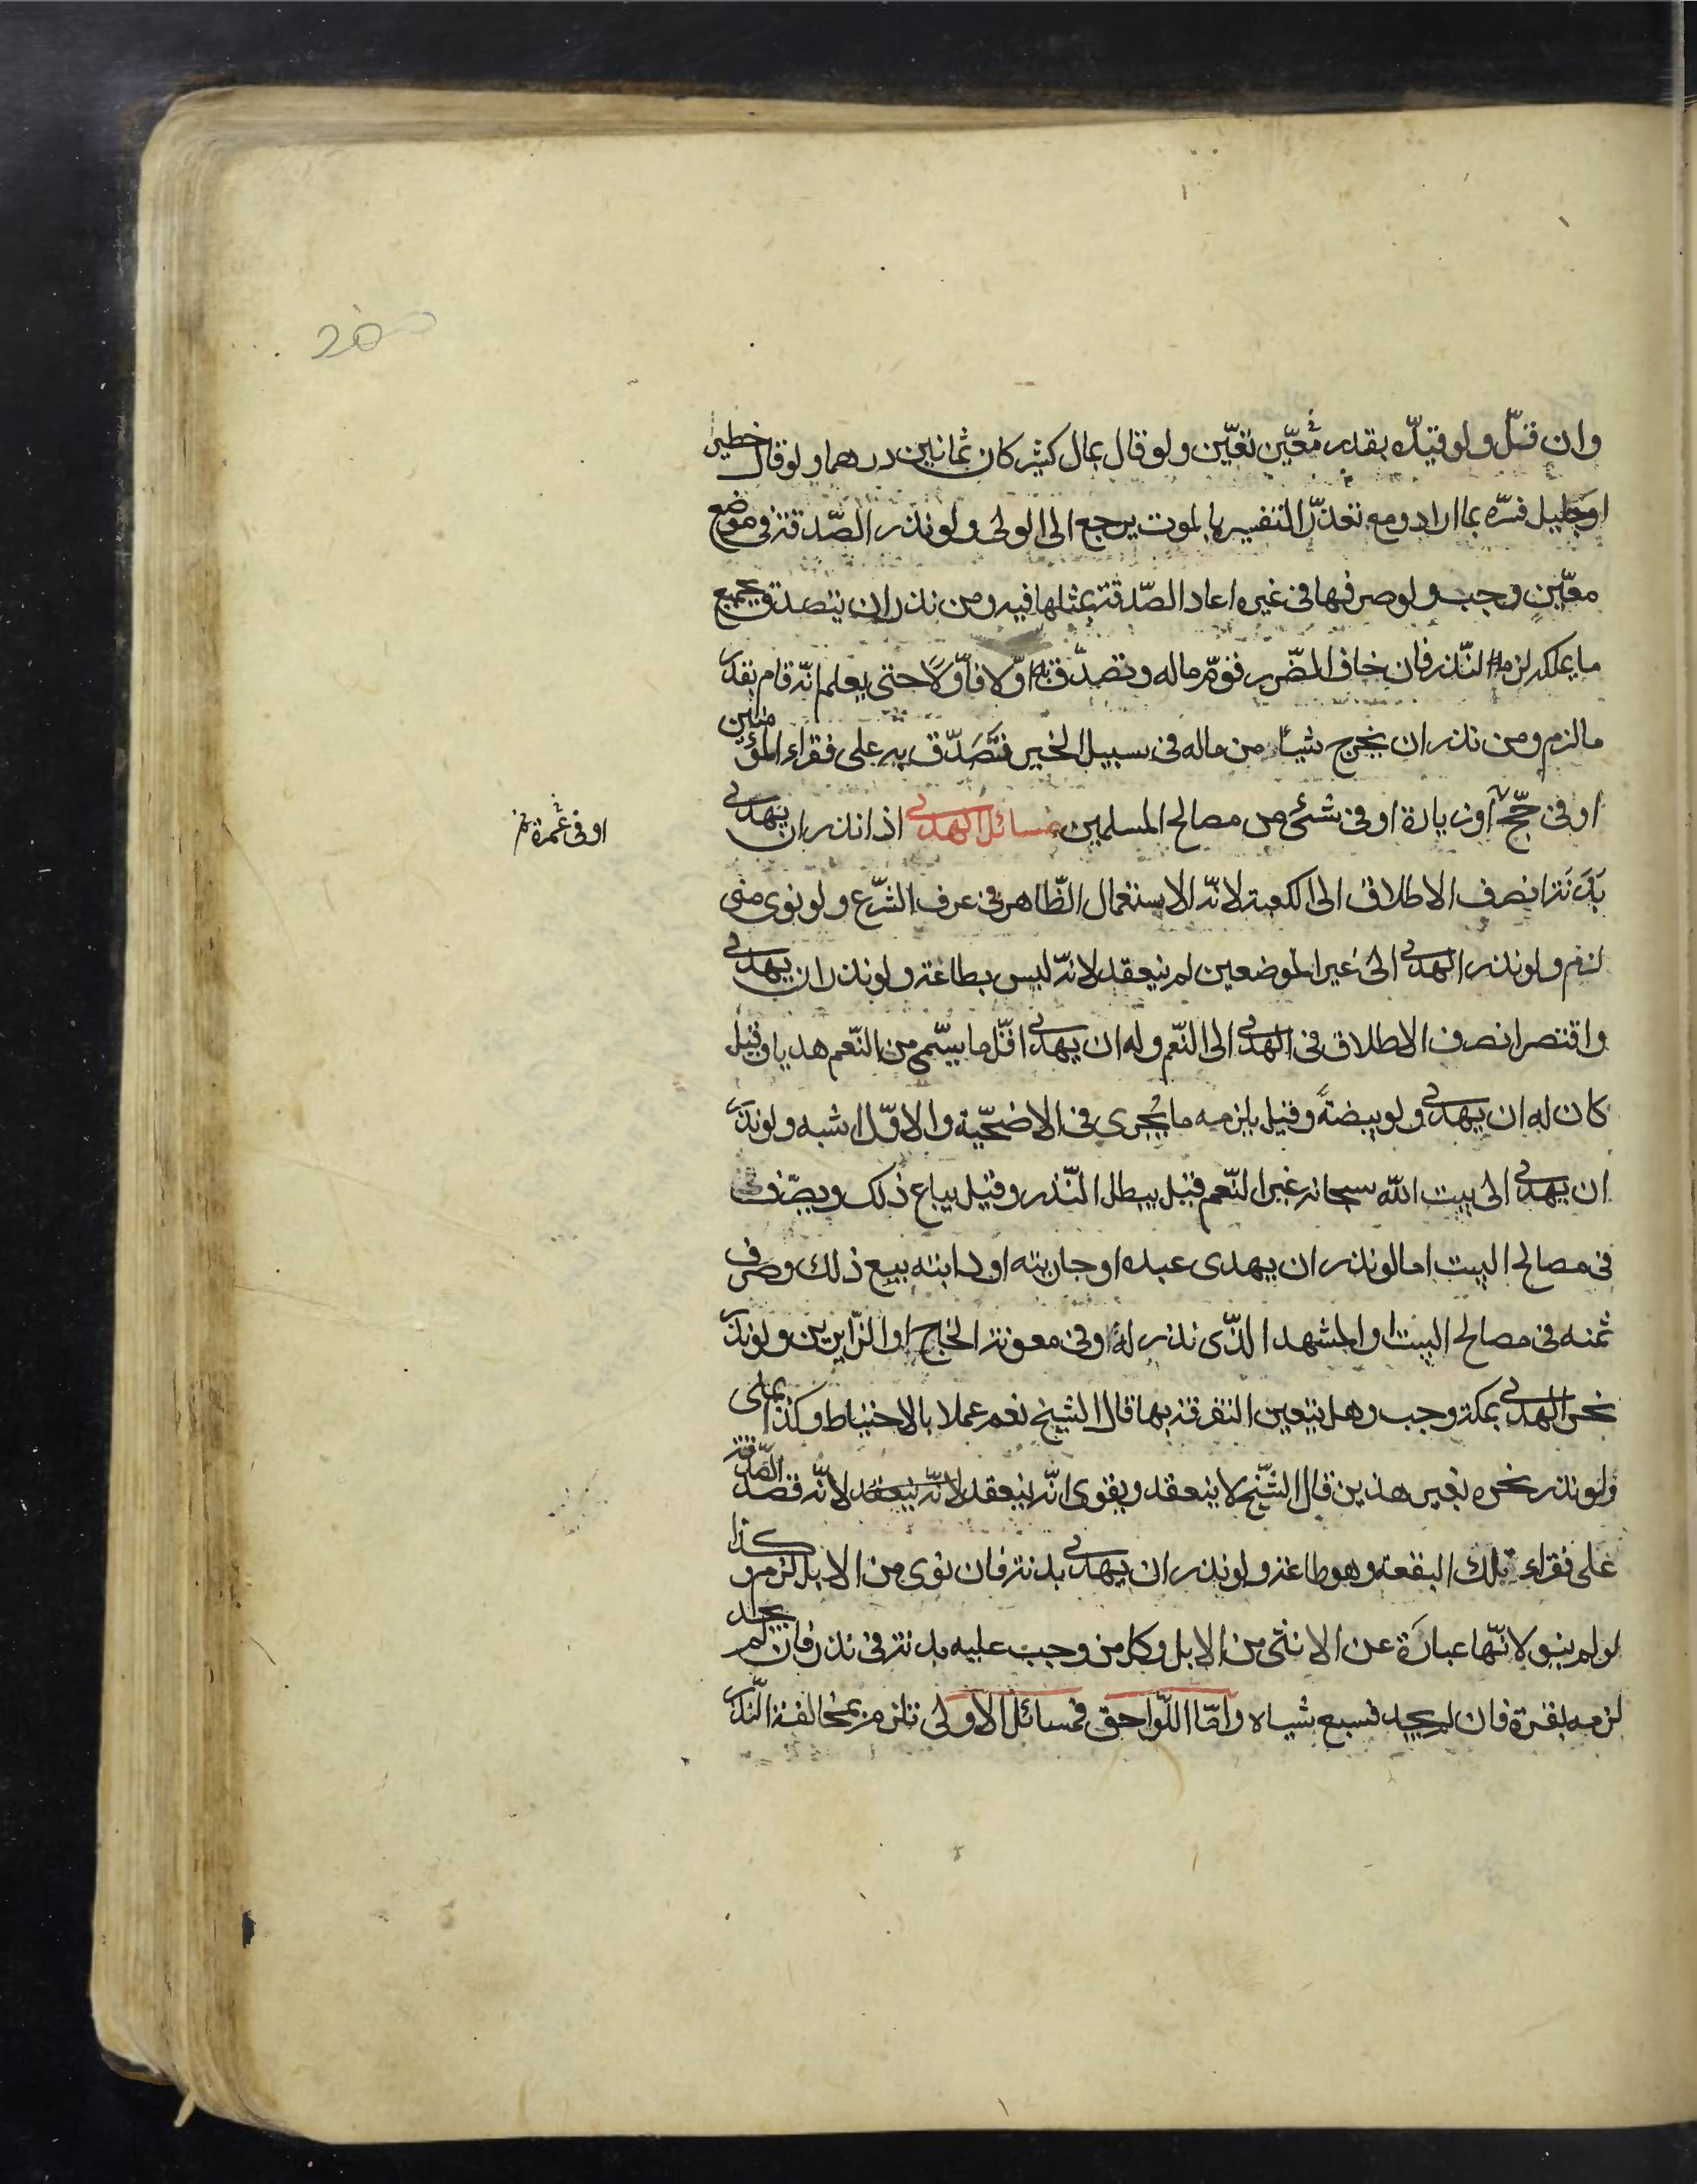 وان قلّ ولو قيّده بقدر معيّن تعيّن ولو قال بمال كثير كان ثمانين درهما ولو قال خطير
او جليل فسّره بما اراد ومع تعذّر التفسير بالموت يرجع الى الولى ولو نذر الصّدقة فى موضع
معيّن وجب ولو صرفها فى غيره اعاد الصّدقة بمثلها فيه ومن نذر ان يتصدق بجميع
ما يملكه لزمه النّذر فان خاف الضّرر قوّم ماله وتصدّق به اوّلا فاوّلاً حتى يعلم انّه قام بقدر
ما لزم ومن نذر ان يخرج شيئاً من ماله فى سبيل الخير تَصَدّق به على فقراء المؤمنين
او فى حجّ او زيارة او فى شىء من مصالح المسلمين مسائل الهدى اذا نذر ان يهدى
او فى عمرة
بَدَنَة انصرف الاطلاق الى الكعبة لانّه الاستعمال الظّاهر فى عرف الشّرع ولو نوى منى
لزم ولو نذر الهدى الى غير الموضعين لم ينعقد لانّه ليس بطاعة ولو نذر ان يهدى
واقتصر انصرف الاطلاق فى الهدى الى النّعم وله ان يهدى اقلّ ما يسّمى من النّعم هديا وقيل
كان له ان يهدى ولو بيضةً وقيل يلزمه ما يُجزى فى الاضحيّة والاوّل اشبه ولو نذر
ان يهدى الى بيت الله سبحانه غير النّعم قيل يبطل النّذر وقيل يباع ذلك ويصرف
فى مصالح البيت اما لو نذر ان يهدى عبده او جاريته او دابته بيع ذلك وصرف
ثمنه فى مصالح البيت او المشهد الذّى نذر له او فى معونة الحاج او الزّايرين ولو نذر
نحر الهدى بمكة وجب وهل يتعين التفرقة بها قال الشيخ نعم عملا بالاحتياط وكذا بمنى
ولو نذر نحره بغير هذين قال الشّيخ لا ينعقد ويقوى انّه ينعقد لانّه ينعقد لانّه قصد الصّدقة
على فقراء تلك البقعة وهو طاعة ولو نذر ان يهدى بدنة فان نوى من الابل لزم وكذا
لو لم ينو لانّها عبارَة عن الانثى من الابل وكل من وجب عليه بدنة فى نذر فان لم يجد
لزمه بقرة فان لم يجد فسبع شياه وامّا اللّواحق فمسائل الاولى تلزم بمخالفة النّذر